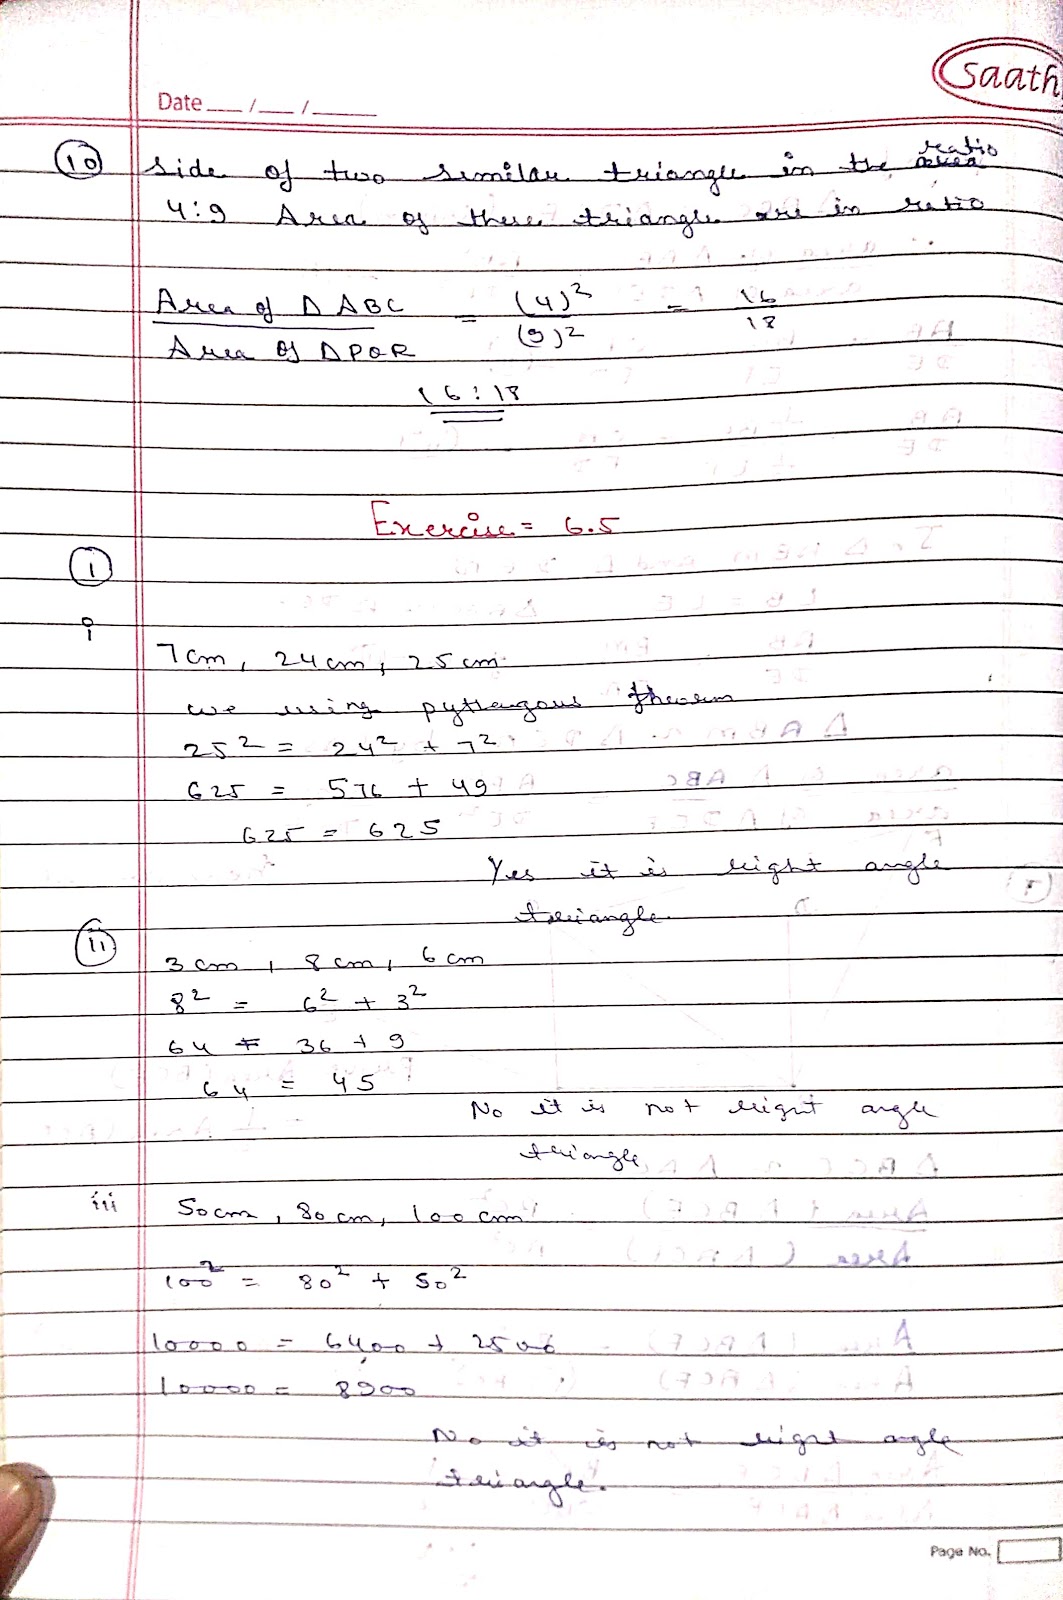 saath
Date __/__/____
10 side of two similar triangle in the ratio
4:9 Area of these triangle are in ratio
Area of Δ ABC / Area of Δ PQR = (4)² / (9)² = 16 / 18
16 : 18
Exercise = 6.5
1
i
7cm, 24cm, 25cm
we using pythagous theorem
25² = 24² + 7²
625 = 576 + 49
625 = 625
Yes it is right angle
triangle
ii
3cm, 8cm, 6cm
8² = 6² + 3²
64 ≠ 36 + 9
64 = 45
No it is not right angle
triangle
iii 50cm, 80cm, 100cm
100² = 80² + 50²
10000 = 6400 + 2500
10000 = 8900
No it is not right angle
triangle.
Page No.